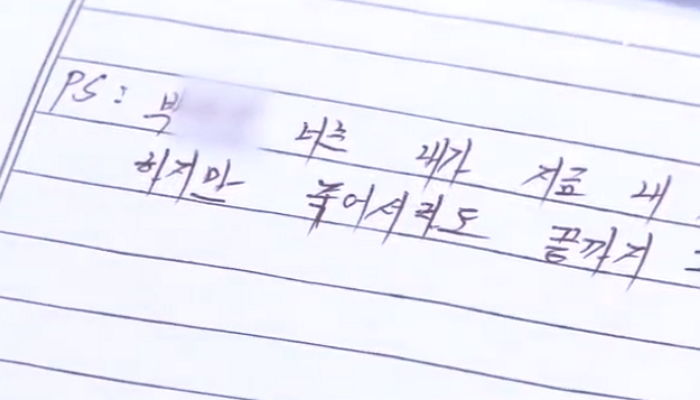 PS : 박 너는 내가 내
하지만 죽어서라도 끝까지